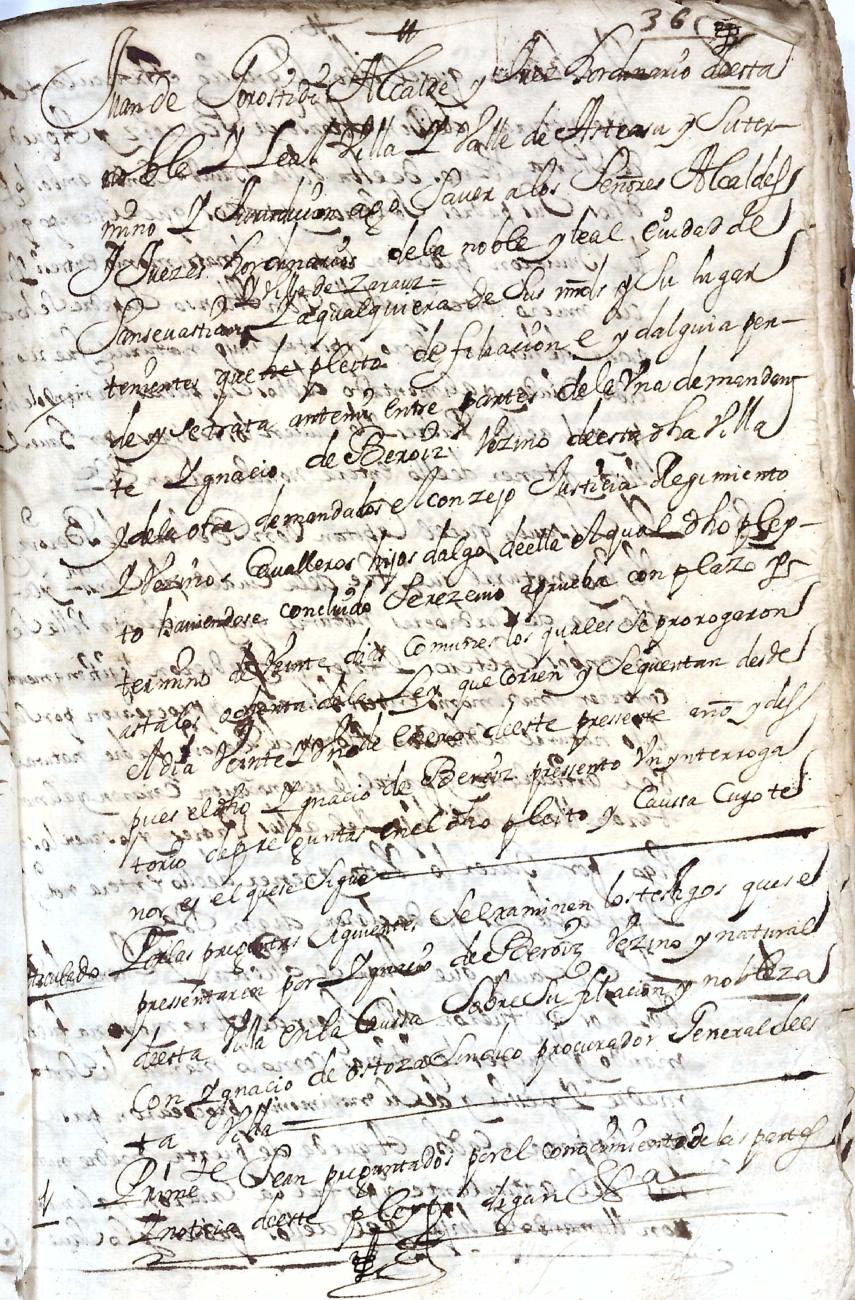 36
Juan de Gorostidi Alcalde y Juez hordinario deesta
noble Y Leal Villa Y Valle de Asteasu y Suter-
mino Y Jurisdicion ago Saver a los Señores Alcaldes
Y Juezes hordinarios dela noble y leal ciudad de
Y Villa de Zarauz=
Sansevastian Y aqualquiera de Sus mrds y Su lugar
tenientes que pleito de filiacion e ydalguia pen-
de y setrata antemi entre partes dela Vna demandan
te Ygnacio de Beroiz Vezino deesta dha Villa
Y dela otra demandados el conzejo Justicia Regimiento
Y Vezinos Cavalleros hijos dalgo deella El qual dho pley-
to haviendose concluido Serezevio aprueba con plazo y
termino de Veinte dias comunes los quales Se prorogaron
asta los ochenta dela Ley que corren y Sequentan desde
El dia Veinte Y de Enero deeste pressente año y des
pues el dho Ygnacio de Beroiz pressento Vn ynterroga
torio de preguntas enel dho pleito y Caussa Cuyo te
nor es el quese Sigue
Por las preguntas Siguientes Se examinen los testigos quese
pressentaren por Ygnacio de Beroiz Vezino y natural
deesta Villa en la Caussa Sobre Su filiacion y nobleza
Con Ygnacio de ostoza Sindico procurador General dees
ta Villa
1 Prime te Sean preguntados por el conocimiento de las partes
Y noticia deeste pleyto digan